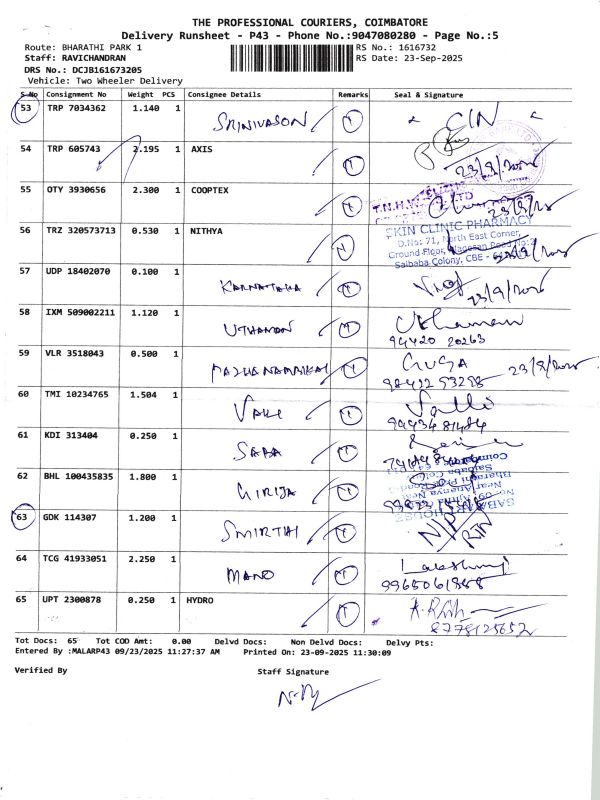 THE PROFESSIONAL COURIERS, COIMBATORE
Delivery Runsheet - P43 - Phone No.:9047080280 - Page No.:5
Route: BHARATHI PARK 1 RS No.: 1616732
Staff: RAVICHANDRAN RS Date: 23-Sep-2025
DRS No.: DCJB161673205
Vehicle: Two Wheeler Delivery
S No Consignment No Weight PCS Consignee Details Remarks Seal & Signature
53 TRP 7034362 1.140 1 SRINIVASON
54 TRP 605743 2.195 1 AXIS
55 OTY 3930656 2.300 1 COOPTEX
56 TRZ 320573713 0.530 1 NITHYA
SKIN CLINIC PHARMACY
D.No: 71, North East Corner,
Ground Floor,
Saibaba Colony, CBE -
57 UDP 18402070 0.100 1 KARNATAKA 23/9/2025
58 IXM 509002211 1.120 1 UTHAMAN Uthaman
94420 20263
59 VLR 3518043 0.500 1 GUGA
60 TMI 10234765 1.504 1 VALLI Valli
61 KDI 313404 0.250 1 SABA
62 BHL 100435835 1.800 1 GIRIJA
63 GDK 114307 1.200 1 SMIRTHI N/P RTN
64 TCG 41933051 2.250 1 MANO Lakshmi
9965061888
65 UPT 2300878 0.250 1 HYDRO
8778125652
Tot Docs: 65 Tot COD Amt: 0.00 Delvd Docs: Non Delvd Docs: Delvy Pts:
Entered By :MALARP43 09/23/2025 11:27:37 AM Printed On: 23-09-2025 11:30:09
Verified By Staff Signature